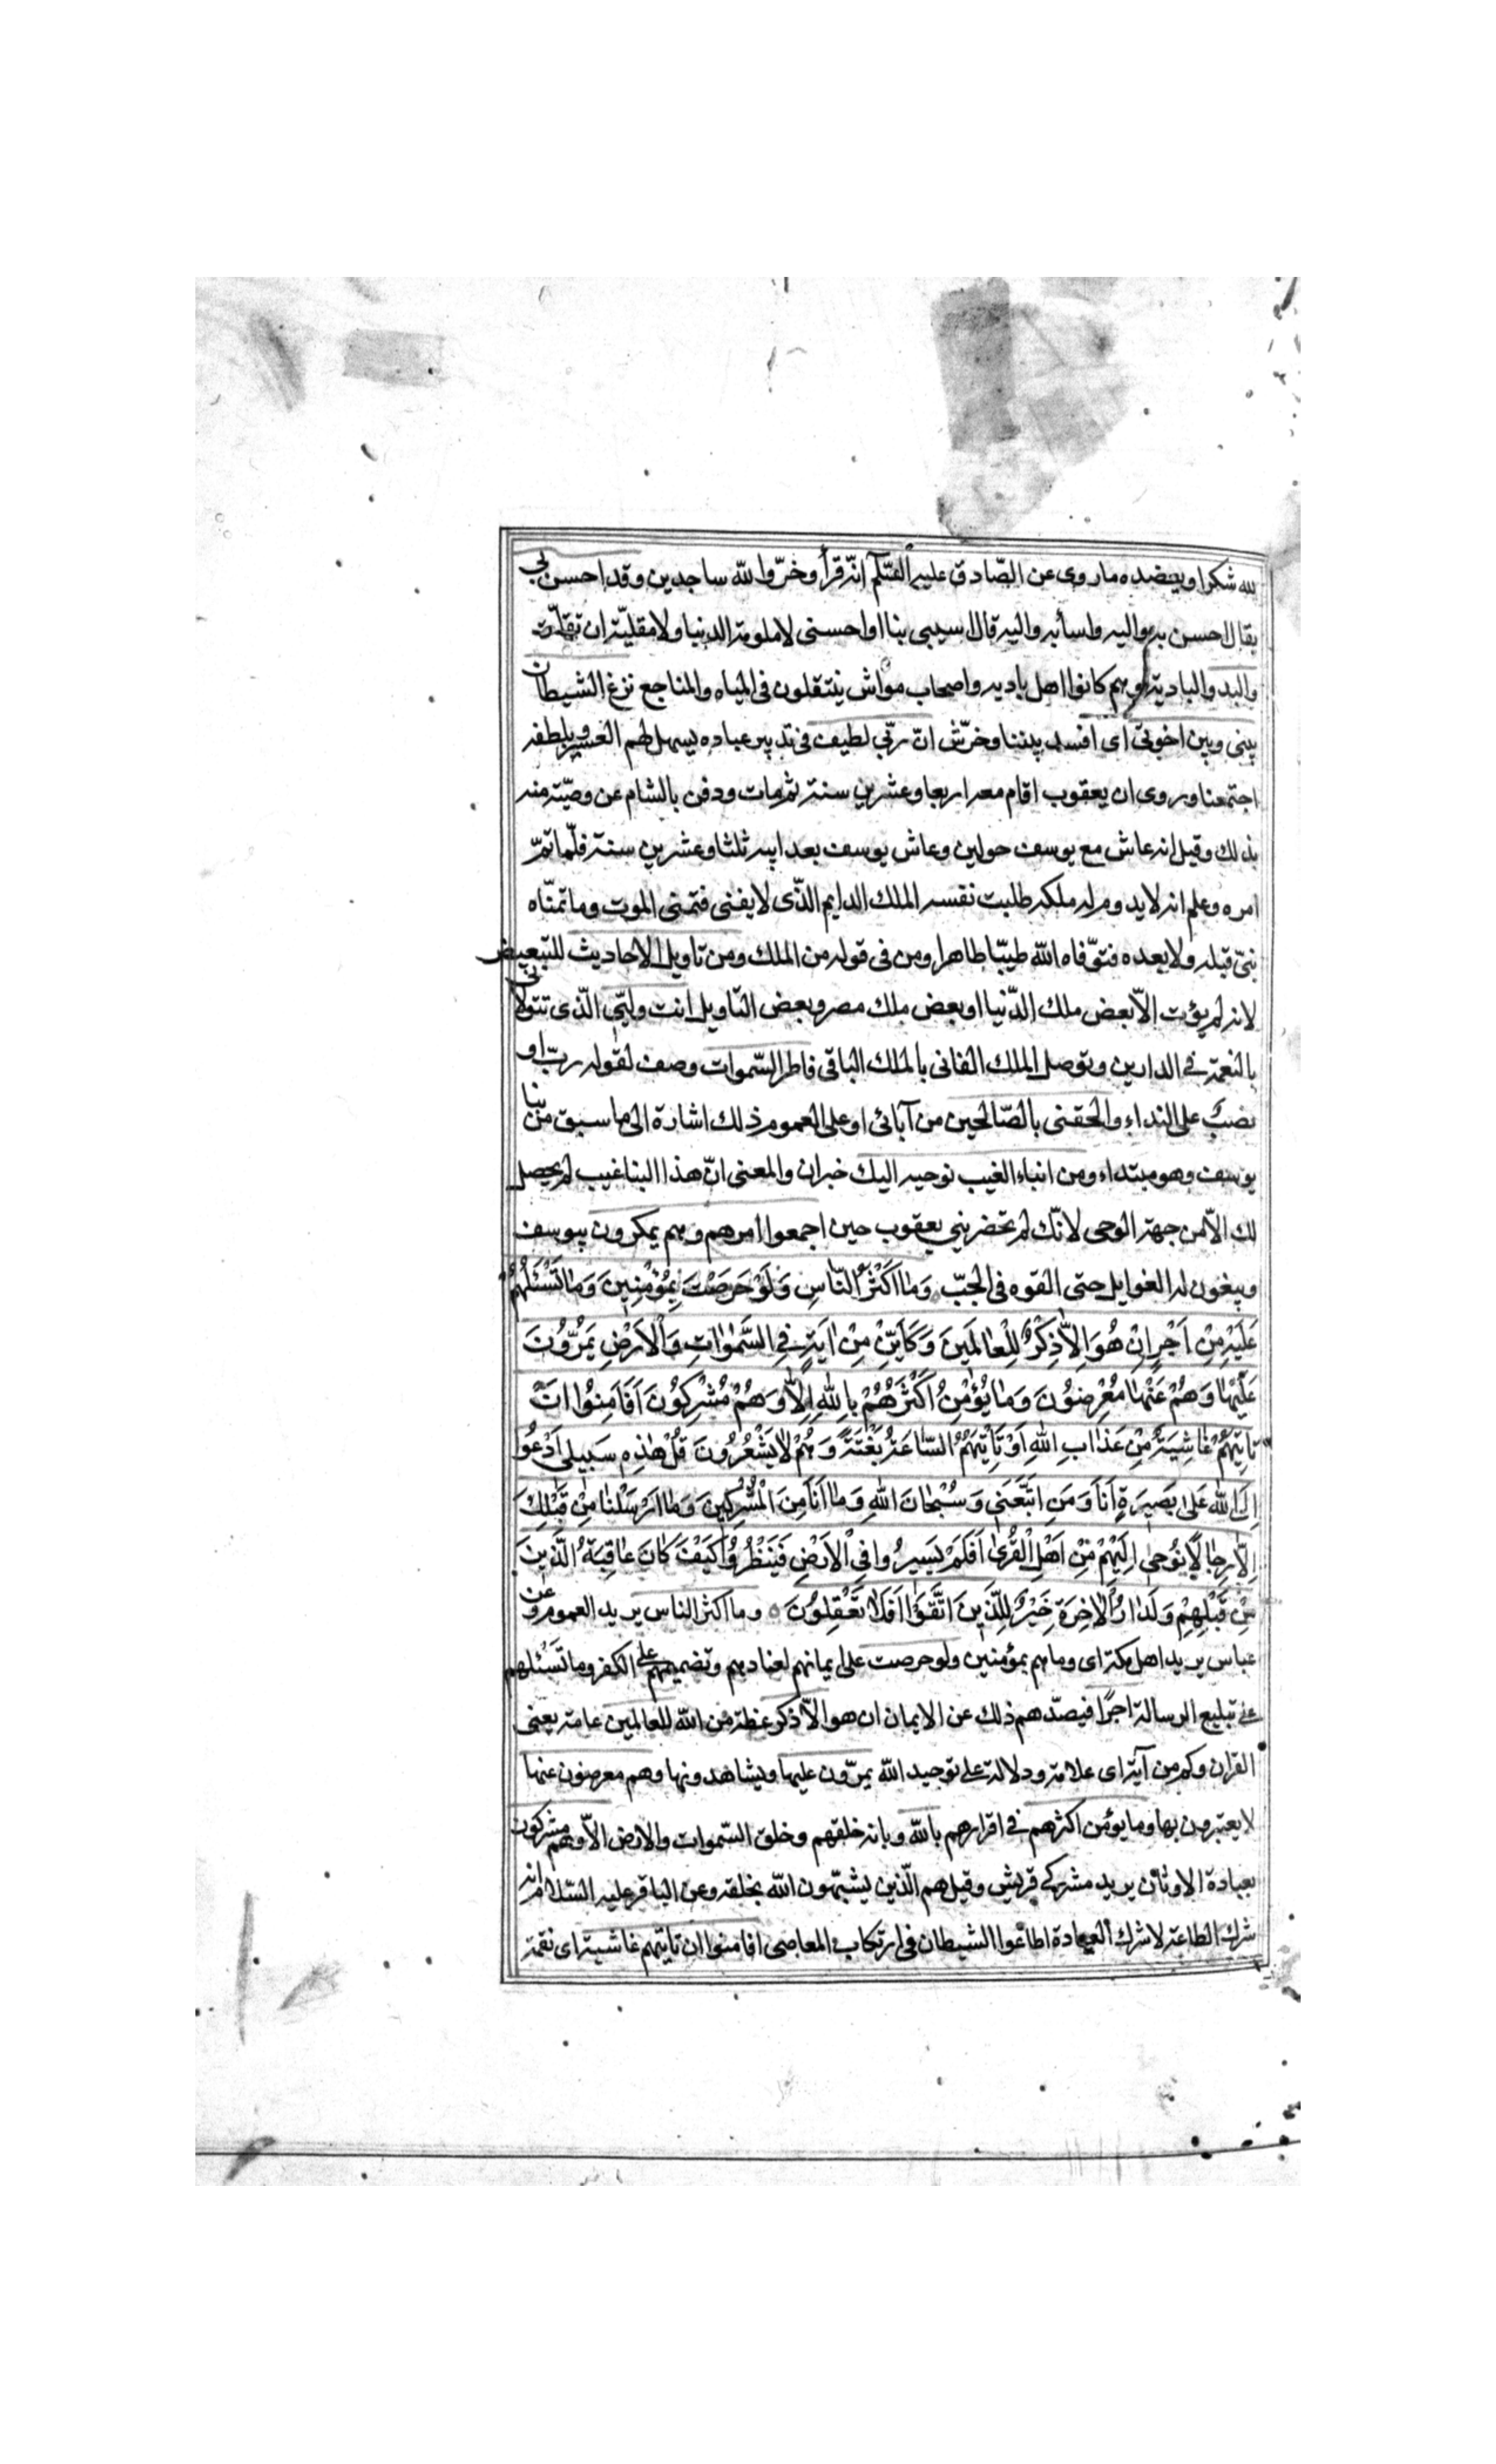 لله شكرا ويعضده ماروى عن الصّادق عليه السّلم انّه قرأ وخرّوا لله ساجدين وقد احسن بى
يقال احسن به واليه واسأ به واليه قال اسيىء بنا او احسنى لا ملومة لدينا ولا مقليّة ان تقلّت
والبدو البادية وهم كانوا اهل بادية واصحاب مواش ينتقلون فى المياه والمناجع نزغ الشيطان
بينى وبين اخوتى اى افسد بيننا وخرّش انّ ربّى لطيف فى تدبير عباده يسهل لهم العسير وبلطفه
اجتمعنا ويروى ان يعقوب اقام معه اربعا وعشرين سنة ثم مات ودفن بالشام عن وصيّة منه
بذلك وقيل انه عاش مع يوسف حولين وعاش يوسف بعد ابيه ثلثا وعشرين سنة فلّما تمّ
امره وعلم انه لا يدوم له ملكه طلبت نفسه الملك الدايم الذّى لا يفنى فتمنى الموت وما تمنّاه
نبىّ قبله ولا بعده فتوّفاه الله طيّبا طاهرا ومن فى قوله من الملك ومن تاويل الاحاديث للتبعيض
لانه لم يؤت الاّ بعض ملك الدّنيا او بعض ملك مصر وبعض التاويل انت وليّى الّذى تتولانى
بالنعمة فى الدارين وتوصل الملك الفانى بالملك الباقى فاطر السّموات وصف لقوله ربّ او
نصب على النداء والحقنى بالصّالحين من آبائى او على العموم ذلك اشارة الى ما سبق من نبا
يوسف وهو مبتداء ومن انباء الغيب نوحيه اليك خبران والمعنى انّ هذا النبا غيب لم يحصل
لك الاّ من جهة الوحى لانّك لم تحضر بنى يعقوب حين اجمعوا امرهم وهم يمكرون بيوسف
ويبغون له الغوايل حتى القوه فى الجبّ وَمَا اَكْثَرُ النَّاسِ وَلَوْ حَرَصْتَ بِمُؤْمِنِينَ وَمَا تَسْئَلُهُمْ
عَلَيْهِ مِنْ اَجْرٍ اِنْ هُوَ اِلاَّ ذِكْرٌ لِلْعَالَمِينَ وَكَاَيِّنْ مِنْ ايَةٍ فِى السَّمٰوَاتِ وَالْاَرْضِ يَمُرُّونَ
عَلَيْهَا وَهُمْ عَنْهَا مُعْرِضُونَ وَمَا يُؤْمِنُ اَكْثَرُهُمْ بِاللهِ اِلاَّ وَهُمْ مُشْرِكُونَ اَفَاَمِنُوا اَنْ
تَاْتِيَهُمْ غَاشِيَةٌ مِنْ عَذَابِ اللهِ اَوْ تَاْتِيَهُمُ السَّاعَةُ بَغْتَةً وَهُمْ لَا يَشْعُرُونَ قُلْ هٰذِهِ سَبِيلِى اَدْعُوا
اِلَى اللهِ عَلَى بَصِيرَةٍ اَنَا وَمَنِ اتَّبَعَنِى وَسُبْحَانَ اللهِ وَمَا اَنَا مِنَ الْمُشْرِكِينَ وَمَا اَرْسَلْنَا مِنْ قَبْلِكَ
اِلاَّ رِجَالًا نُوحِى اِلَيْهِمْ مِنْ اَهْلِ الْقُرَى اَفَلَمْ يَسِيرُوا فِى الْاَرْضِ فَيَنْظُرُوا كَيْفَ كَانَ عَاقِبَةُ الَّذِينَ
مِنْ قَبْلِهِمْ وَلَدَارُ الْاخِرَةِ خَيْرٌ لِلَّذِينَ اتَّقَوْا اَفَلَا تَعْقِلُونَ ٥ وما اكثر الناس يريد العموم وعن
عباس يريد اهل مكة اى وما هم بمؤمنين ولو حرصت على ايمانهم لعنادهم وتصميمهم على الكفر وما تسئلهم
على تبليغ الرسالة اجرًا فيصدّهم ذلك عن الايمان ان هو الاّ ذكر عظة من الله للعالمين عامة يعنى
القران وكم من آية اى علامة ودلالة على توحيد الله يمرّون عليها ويشاهدونها وهم معرضون عنها
لا يعتبرون بها وما يؤمن اكثرهم فى اقرارهم بالله وبانه خلقهم وخلق السّموات والارض الاّ وهم مشركون
بعبادة الاوثان يريد مشركى قريش وقيل هم الّذين يشبّهون الله بخلقه وعن الباقر عليه السّلام انه
شرك الطاعة لا شرك العبادة اطاعوا الشيطان فى ارتكاب المعاصى افامنوا ان تاتيهم غاشية اى نقمة